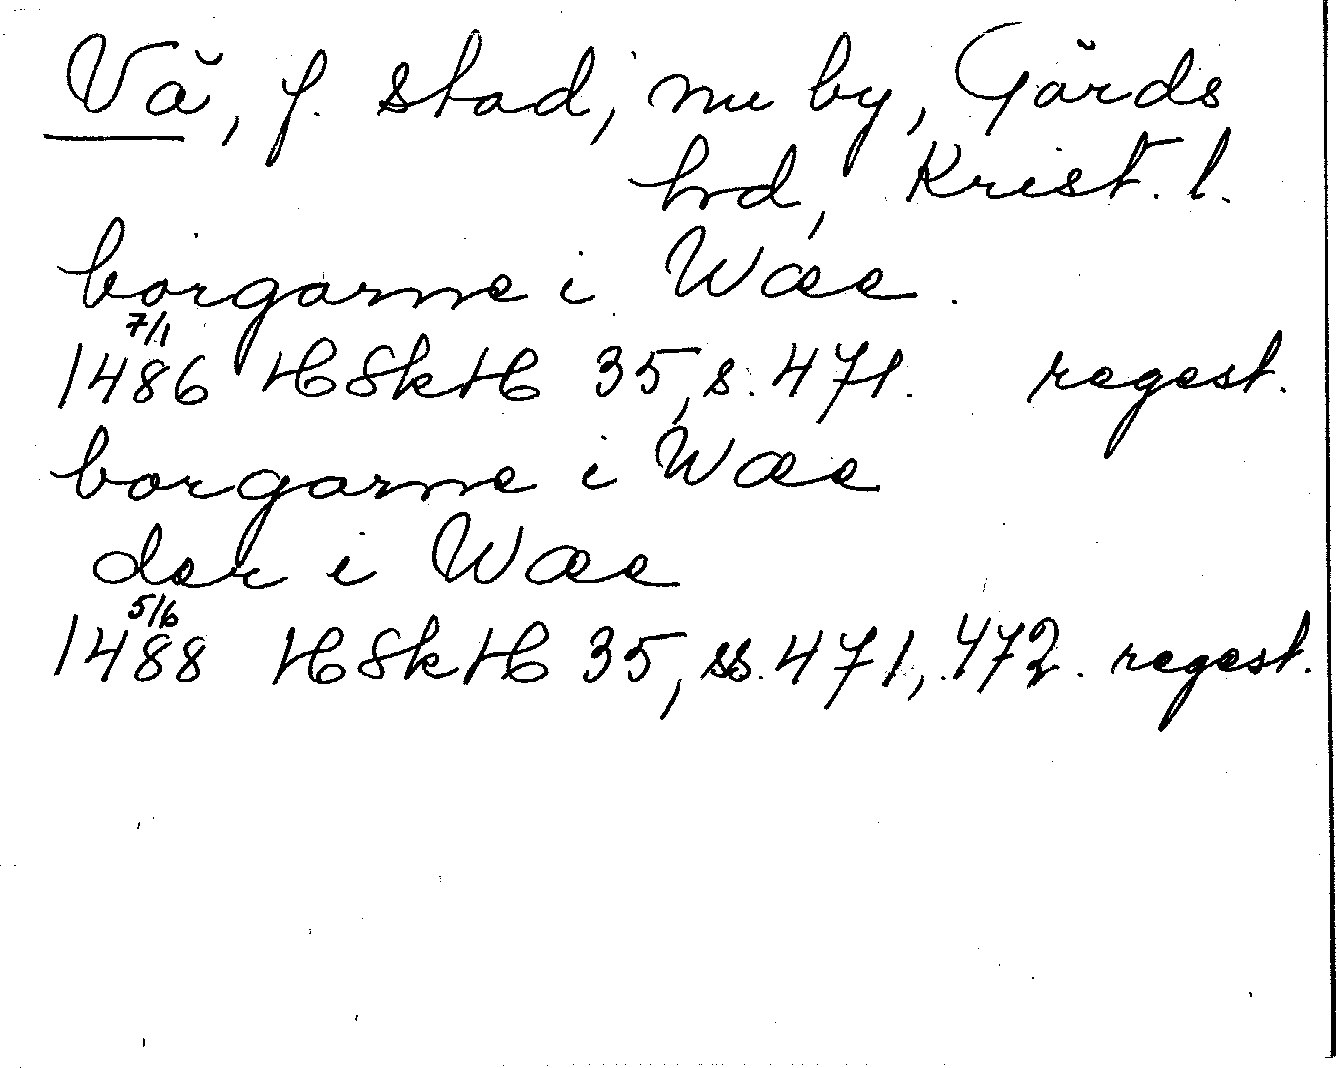 Vä, f. stad, nu by, Gärds
hd, Krist. l.
borgarne i Wæe.
7/1
1486 HSkH 35, s. 471. regest.
borgarne i Wæe
der i Wæe
5/6
1488 HSkH 35, ss. 471, 472. regest.